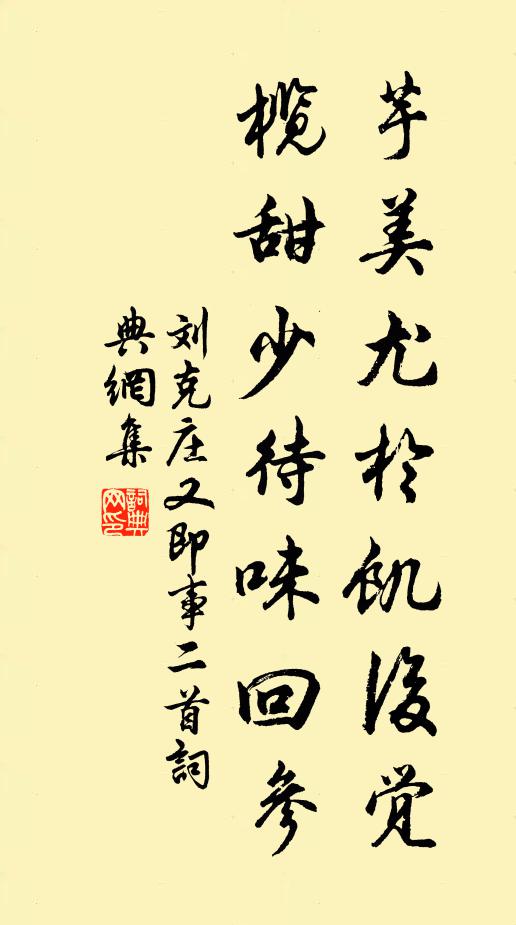 芋美尤於飢後觉
榄甜少待味回參
刘克庄又即事二首詞
典網集
詞典网印